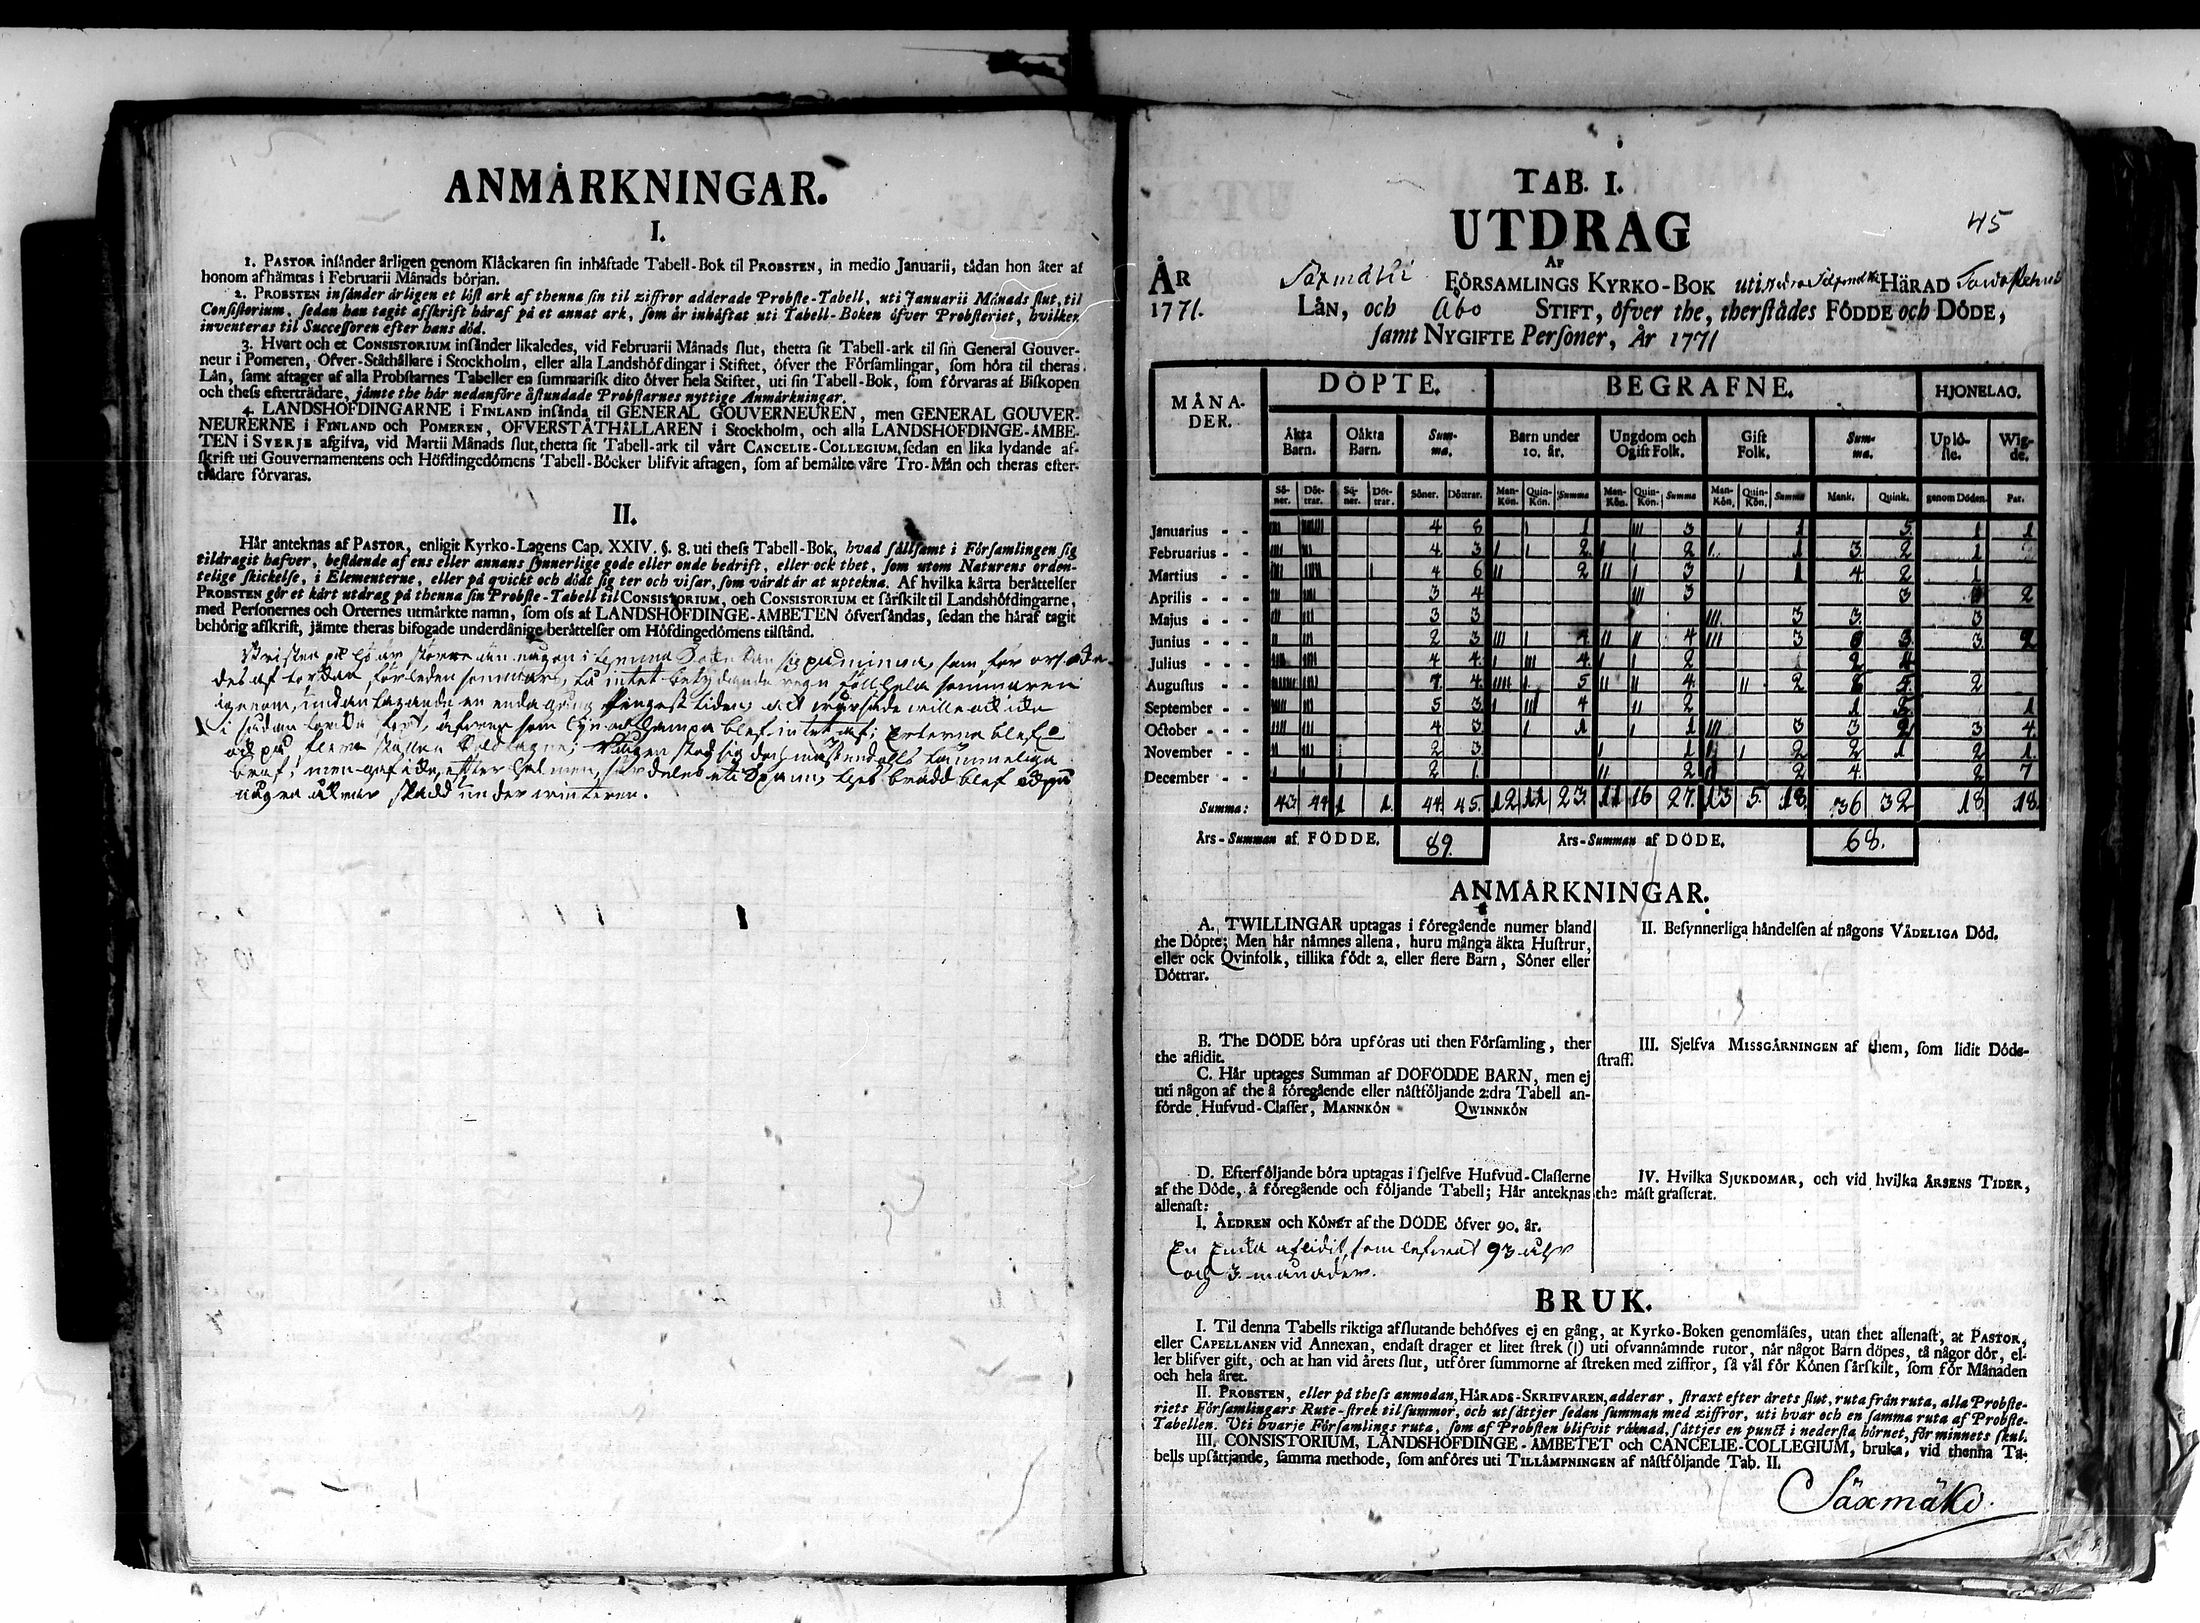 ANMÄRKNINGAR.
I.
1. PASTOR insänder årligen genom Klåckaren sin inhäftade Tabell-Bok til PROBSTEN, in medio Januarii, tådan hon åter af
honom afhämtas i Februarii Månads början.
2. PROBSTEN insänder årligen et löst ark af thenna sin til ziffror adderade Probste-Tabell, uti Januarii Månads slut, til
Consistorium, sedan han tagit afskrift häraf på et annat ark, som är inhäftat uti Tabell-Boken öfver Probsteriet, hvilken
inventeras til Successoren efter hans död.
3. Hvart och et CONSISTORIUM insänder likaledes, vid Februarii Månads slut, thetta sit Tabell-ark til sin General Gouver-
neur i Pomeren, Öfver-Ståthållare i Stockholm, eller alla Landshöfdingar i Stiftet, öfver the Församlingar, som höra til theras
Län, samt aftager af alla Probstarnes Tabeller en summarisk dito öfver hela Stiftet, uti sin Tabell-Bok, som förvaras af Biskopen
och thess efterträdare, jämte the här nedanföre åstundade Probstarnes nyttige Anmärkningar.
4. LANDSHÖFDINGARNE i FINLAND insända til GENERAL GOUVERNEUREN, men GENERAL GOUVER-
NEURERNE i FINLAND och POMEREN, ÖFVERSTÅTHÅLLAREN i Stockholm, och alla LANDSHÖFDINGE-ÄMBE-
TEN i SVERJE afgifva, vid Martii Månads slut, thetta sit Tabell-ark til vårt CANCELIE-COLLEGIUM, sedan en lika lydande af-
skrift uti Gouvernamentens och Höfdingedömens Tabell-Böcker blifvit aftagen, som af bemälte våre Tro-Män och theras efter-
trädare förvaras.
II.
Här anteknas af PASTOR, enligit Kyrko-Lagens Cap. XXIV. §. 8. uti thess Tabell-Bok, hvad sällsamt i Församlingen sig
tildragit hafver, bestående af ens eller annans synnerlige gode eller onde bedrift, eller ock thet, som utom Naturens orden-
telige skickelse, i Elementerne, eller på qvickt och dödt sig ter och visar, som värdt är at uptekna. Af hvilka kårta berättelser
PROBSTEN gör et kårt utdrag på thenna sin Probste-Tabell til CONSISTORIUM, och CONSISTORIUM et särskilt til Landshöfdingarne,
med Personernes och Orternes utmärkte namn, som oss af LANDSHÖFDINGE-ÄMBETEN öfversändas, sedan the häraf tagit
behörig afskrift, jämte theras bifogade underdånige berättelser om Höfdingedömens tilstånd.
Bristen på hö är större än någon i
des af torkan förleden sommar, då intet betydande regn föll hela sommaren
igenom, undantagande en enda gång
blef intet af;
och på flera ställen
braf; men gaf icke efter halmen, brådd blef
några åkrar skadd under winteren.
TAB. I.
UTDRAG
45
AF
ÅR Saxmäki FÖRSAMLINGS KYRKO-BOK uti HÄRAD
1771. LÄN, och Åbo STIFT, öfver the, therstädes FÖDDE och DÖDE,
samt NYGIFTE Personer, År 1771
MÅNA-DER. DÖPTE. BEGRAFNE. HJONELAG.
Äkta Barn. Oäkta Barn. Summa. Barn under 10. år. Ungdom och Ogift Folk. Gift Folk. Summa. Uplöste. Wigde.
Söner. Döttrar. Söner. Döttrar. Söner. Döttrar. Mankön. Quinkön. Summa Mankön. Quinkön. Summa Mankön. Quinkön. Summa Mank. Quink. genom Döden. Par.
Januarius - - 4 8 1 3 1 5 1 1
Februarius - - 4 3 2 2 1 3 2 1
Martius - - 4 6 2 3 1 4 2 1
Aprilis - - - 3 4 3 3 2
Majus - - - 3 3 3 3 3
Junius - - - 2 3 4 4 3 3 3 2
Julius - - - 4 4 4 2 2 4
Augustus - - 7 4 5 4 2 5 2
September - - 5 3 4 2 1 5 1
October - - - 4 3 1 1 3 3 2 3 4
November - - 2 3 1 2 2 1 2 1
December - - 2 1 2 2 4 2 7
Summa: 43 44 1 1 44 45 12 11 23 11 16 27 13 5 18 36 32 18 18
Års-Summan af FÖDDE. 89. Års-Summan af DÖDE. 68.
ANMÄRKNINGAR.
A. TWILLINGAR uptagas i föregående numer bland
the Döpte; Men här nämnes allena, huru många äkta Hustrur,
eller ock Qvinfolk, tillika födt 2, eller flere Barn, Söner eller
Döttrar.
B. The DÖDE böra upföras uti then Församling, ther
the aflidit.
C. Här uptages Summan af DÖFÖDDE BARN, men ej
uti någon af the å föregående eller nästföljande 2:dra Tabell an-
förde Hufvud-Classer, MANNKÖN QWINNKÖN
D. Efterföljande böra uptagas i sjelfve Hufvud-Classerne
af the Döde, å föregående och följande Tabell; Här anteknas
allenast:
I. ÅLDREN och KÖNET af the DÖDE öfver 90. år.
En Enka aflidit, som lefwat 93 åhr
och 3 månader.
II. Besynnerliga händelsen af någons VÅDELIGA Död.
III. Sjelfva MISSGÄRNINGEN af them, som lidit Döds-
straff.
IV. Hvilka SJUKDOMAR, och vid hvilka ÅRSENS TIDER,
the mäst grasserat.
BRUK.
I. Til denna Tabells riktiga afslutande behöfves ej en gång, at Kyrko-Boken genomläses, utan thet allenast, at PASTOR,
eller CAPELLANEN vid Annexan, endast drager et litet strek (|) uti ofvannämnde rutor, när något Barn döpes, tå någor dör, el-
ler blifver gift, och at han vid årets slut, utförer summorne af streken med ziffror, så väl för Könen särskilt, som för Månaden
och hela året.
II. PROBSTEN, eller på thess anmodan, HÄRADS-SKRIFVAREN, adderar, straxt efter årets slut, ruta från ruta, alla Probste-
riets Församlingars Rute-strek til summor, och utsättjer sedan summan med ziffror, uti hvar och en samma ruta af Probste-
Tabellen. Uti hvarje Församlings ruta, som af Probsten blifvit räknad, sättjes en punct i nedersta hörnet, för minnets skul.
III. CONSISTORIUM, LANDSHÖFDINGE-ÄMBETET och CANCELIE-COLLEGIUM, bruka, vid thenna Ta-
bells upsättjande, samma methode, som anföres uti TILLÄMPNINGEN af nästföljande Tab. II.
Säxmäki.